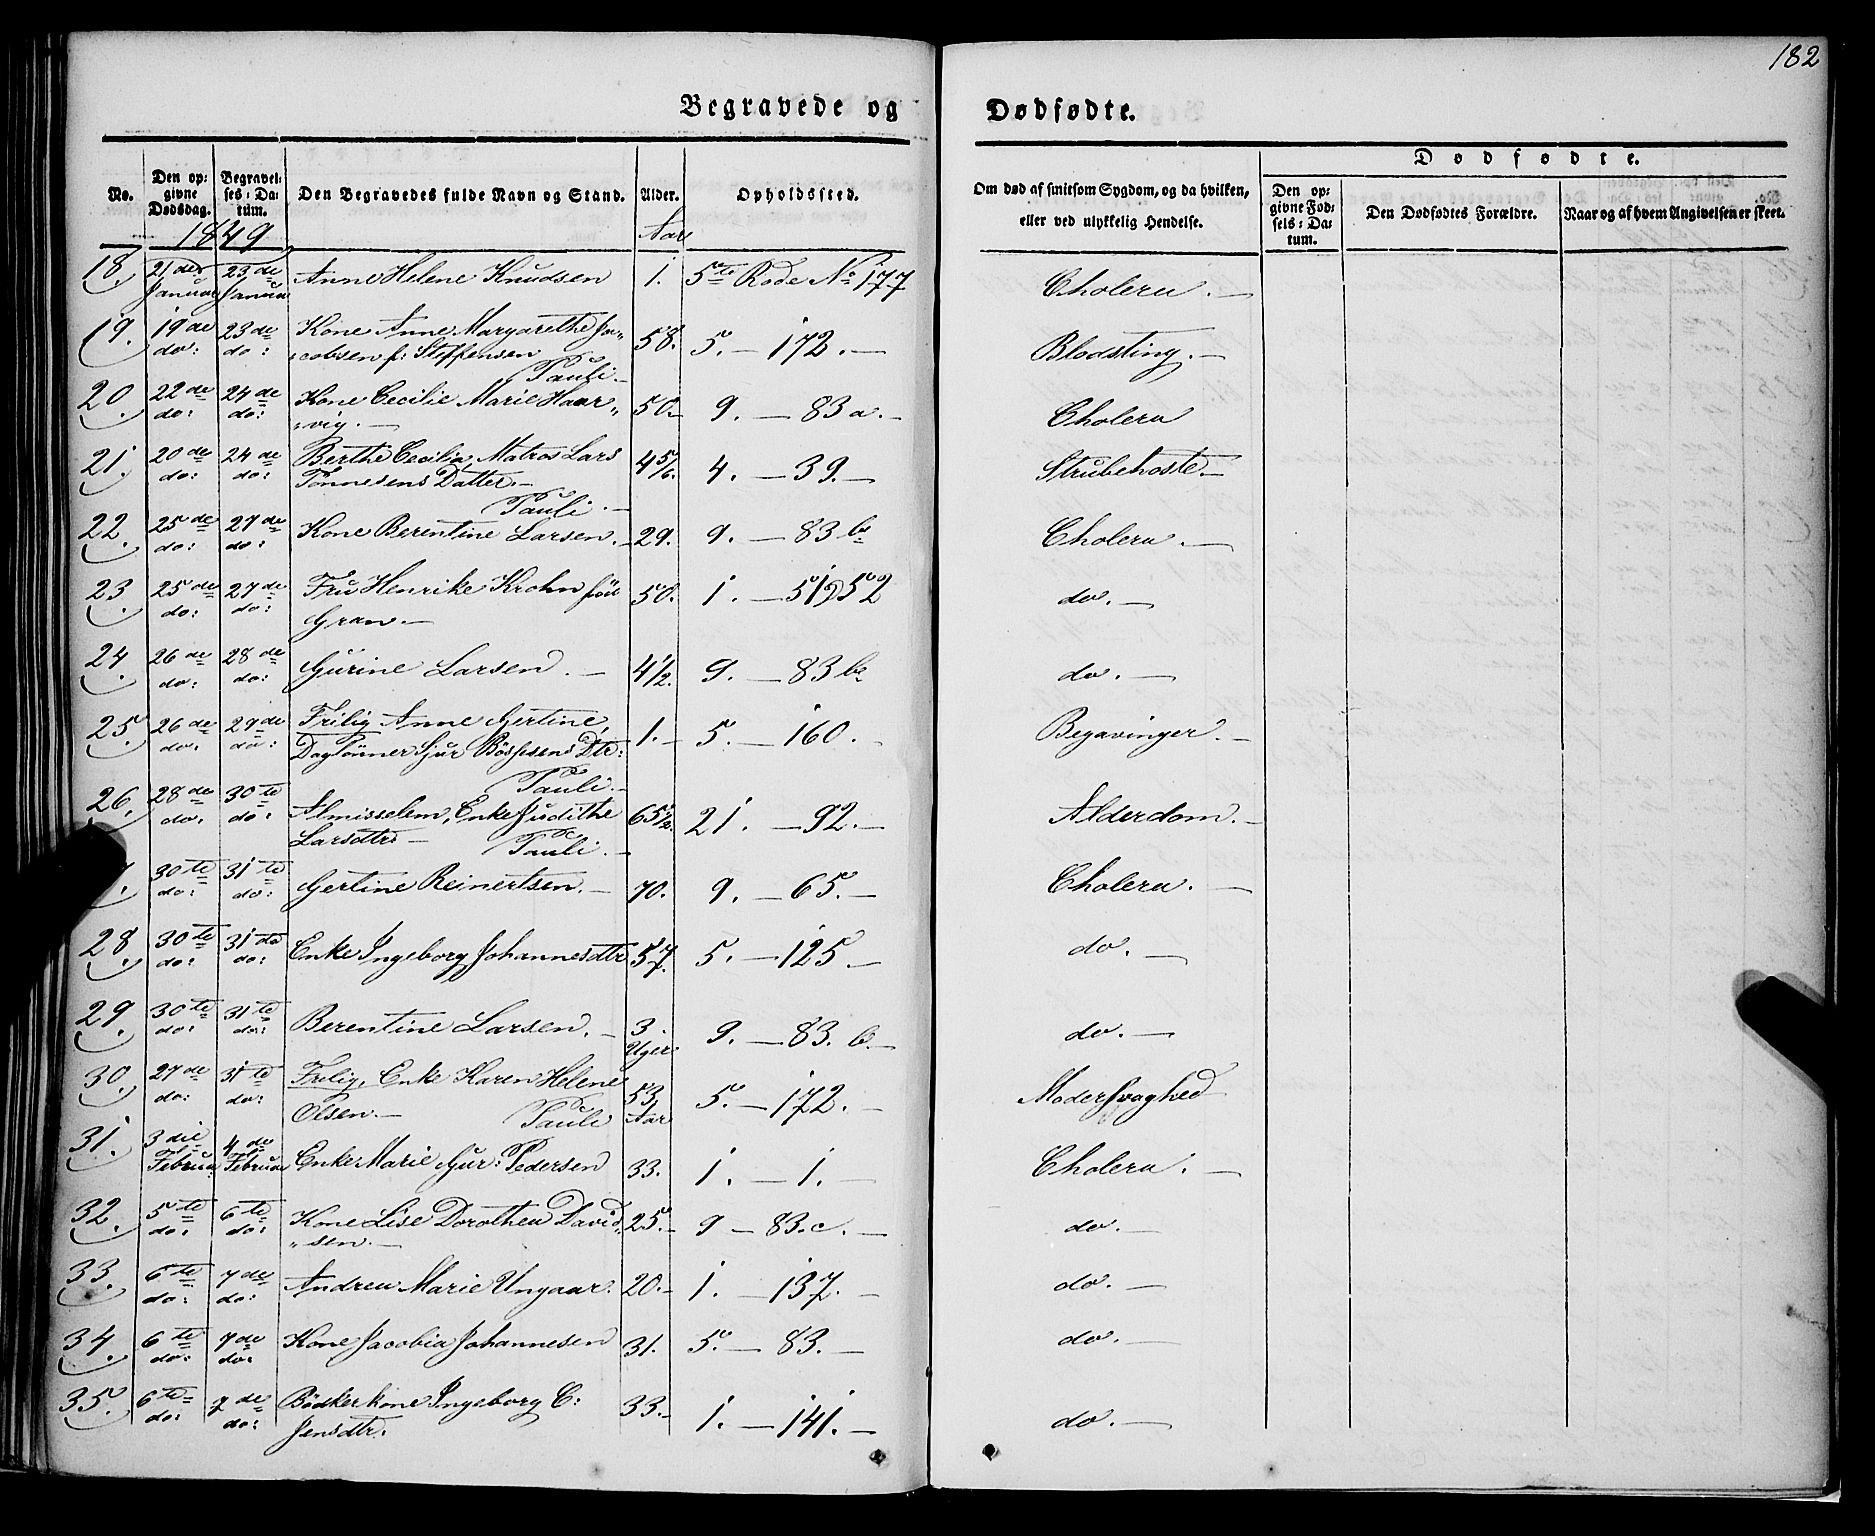 182
Begravede og Dødfødte.
No. Den opgivne Dødsdag. Begravelses-Datum. Den Begravedes fulde Navn og Stand. Alder. Opholdssted. Om død af smitsom Sygdom, og da hvilken, eller ved ulykkelig Hendelse. Dødfødte. Den opgivne Fødsels-Datum. Den Dødfødtes Forældre. Naar og af hvem Angivelsen er skeet.
1849 Aar
18. 21de Januar 23de Januar Anne Helene Knudsen 1. 5te Rode No 177 Cholera.
19. 19de do: 23de do: Kone Anne Margarethe Ja„
„cobsen f: Steffensen 58. 5. — 172. — Blodsting. —
Pauli. —
20. 22de do: 24de do: Kone Cecilie Marie Haar„
„vig. — 50. — 9. — 83 a. — Cholera
21. 20de do: 24de do: Berthe Cecilia, Matros Lars
Tønnesens Datter. — 4 5/6. 4. — 39. — Strubehoste. —
Pauli. —
22. 25de do: 27de do: Kone Berentine Larsen. — 29. 9. — 83 b Cholera. —
23. 25de do: 27de do: Fru Henrike Krohn fød
Gran. — 50. 1. — 51 & 52 do. —
24. 26de do: 28de do: Gurine Larsen. — 4 1/2. 9. — 83 b. do. —
25. 26de do: 29de do: Frilig Anne Gertine,
Daglønner Gur Børgesens Dtr: 1. — 5. — 160. Begavinger. —
Pauli. —
26. 28de do: 30te do: Almisselem, Enke Judithe
Larsdtr — 65 1/2. 21. — 92. — Alderdom. —
Pauli. —
7. 30te do: 31te do: Gertine Reinertsen. — 70. 9. — 65. — Cholera. —
28. 30te do: 31te do: Enke Ingeborg Johannesdtr 57. 5. — 125. — do. —
29. 30te do: 31te do: Berentine Larsen. — 3. Uger 9. — 83. b. — do. —
30. 27de do: 31te do: Frilig, Enke Karen Helene
Olsen. — 53 Aar 5. — 172. — Modersvaghed
Pauli
31. 3die Februar 4de Februar Enke Marie Gur: Pedersen 33. 1. — 1. — Cholera. —
32. 5te do: 6te do: Kone Lise Dorothea David„
„sen. — 25. — 9 — 83. c. — do. —
33. 6te do: 7de do: Andrea Marie Ungaar. 20. — 1. — 137. — do. —
34. 6te do: 7de do: Kone Jacobia Johannesen 31. 5. — 83. — do. —
35. 6te do: 7de do: Bødkerkone Ingeborg C:
Jensdtr. 33. — 1. — 141. — do. —